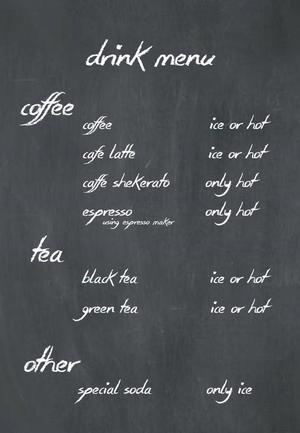 drink menu
coffee
coffee ice or hot
cafe latte ice or hot
caffe shekerato only hot
espresso only hot
using espresso maker
tea
black tea ice or hot
green tea ice or hot
other
special soda only ice